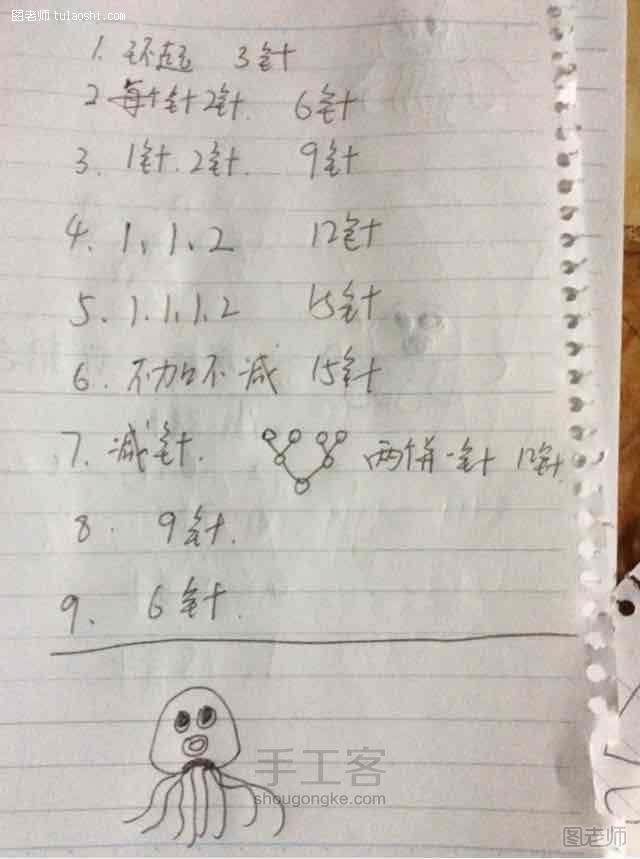 图老师 tulaoshi.com
1. 环起 3针
2 每个针2针. 6针
3. 1针.2针. 9针
4. 1、1、2 12针
5. 1.1.1.2 15针
6. 不加不减 15针
7. 减针. 两併一针 12针
8. 9针.
9. 6针.
手工客
shougongke.com
图老师